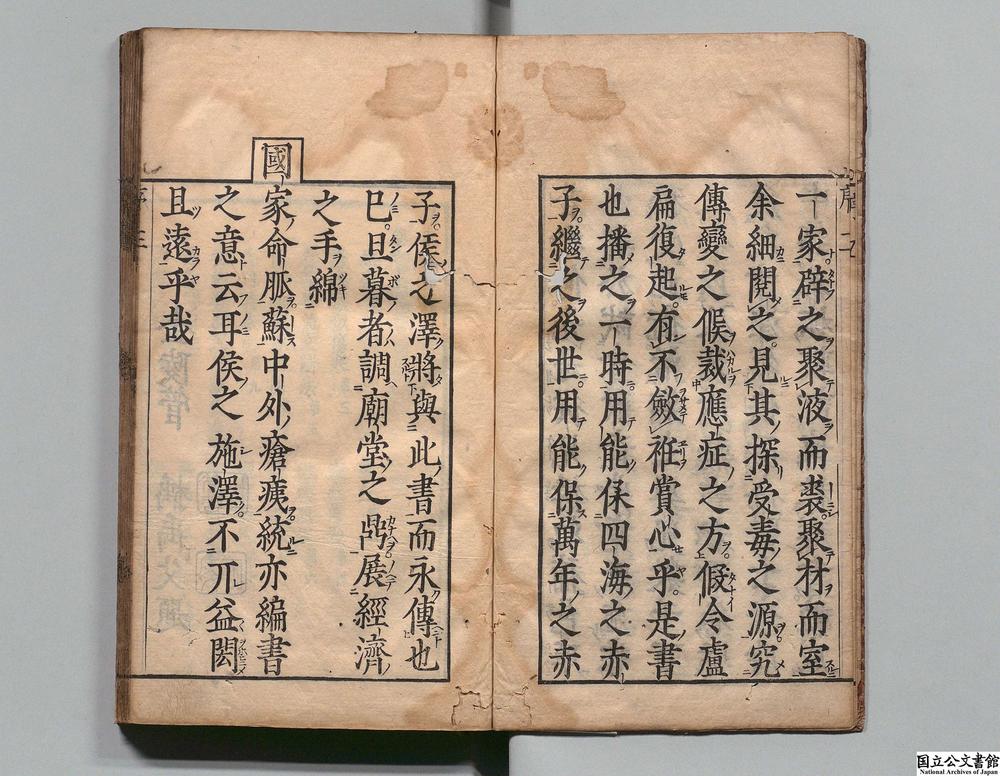 一家辟之聚液而裘聚材而室
余細閱之見其探受毒之源究
傳變之候裁應症之方假令盧
扁復起有不斂袵賞心乎是書
也播之一時用能保四海之赤
子繼之後世用能保萬年之赤
子侯之澤將與此書而永傳也
巳旦暮者調廟堂之鼎展經濟
之手綿
國家命脈蘇中外瘡痍統亦編書
之意云耳侯之施澤不亓益閎
且遠乎哉
国立公文書館
National Archives of Japan